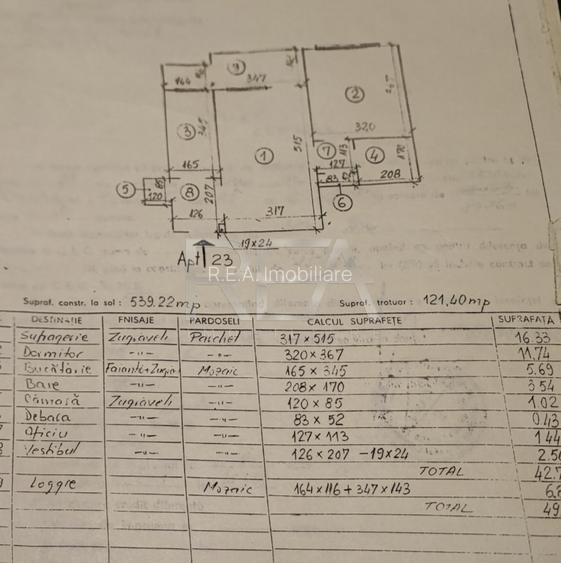 9
144
347
2
3
345
515
320
1
7
113
4
170
165
127
5
85
8
207
83
52
208
120
6
126
317
19x24
Apt 23
REA
R.E.A Imobiliare
Supraf. constr. la sol : 539.22 mp Supraf. trotuar : 121,40 mp
DESTINAŢIE FNISAJE PARDOSELI CALCUL SUPRAFEŢE SUPRAFAŢA
Sufragerie Zugrăveli Parchet 317 x 515 16.33
Dormitor -"- -"- 320 x 367 11,74
Bucătărie Faianţă+Zugrav Mozaic 165 x 345 5.69
Baie -"- -"- 208 x 170 3.54
Cămară Zugrăveli -"- 120 x 85 1.02
Debara -"- -"- 83 x 52 0.43
Oficiu -"- -"- 127 x 113 1.44
Vestibul -"- -"- 126 x 207 - 19 x 24 2.56
TOTAL 42.7
Loggie Mozaic 164 x 116 + 347 x 143 6.8
TOTAL 49